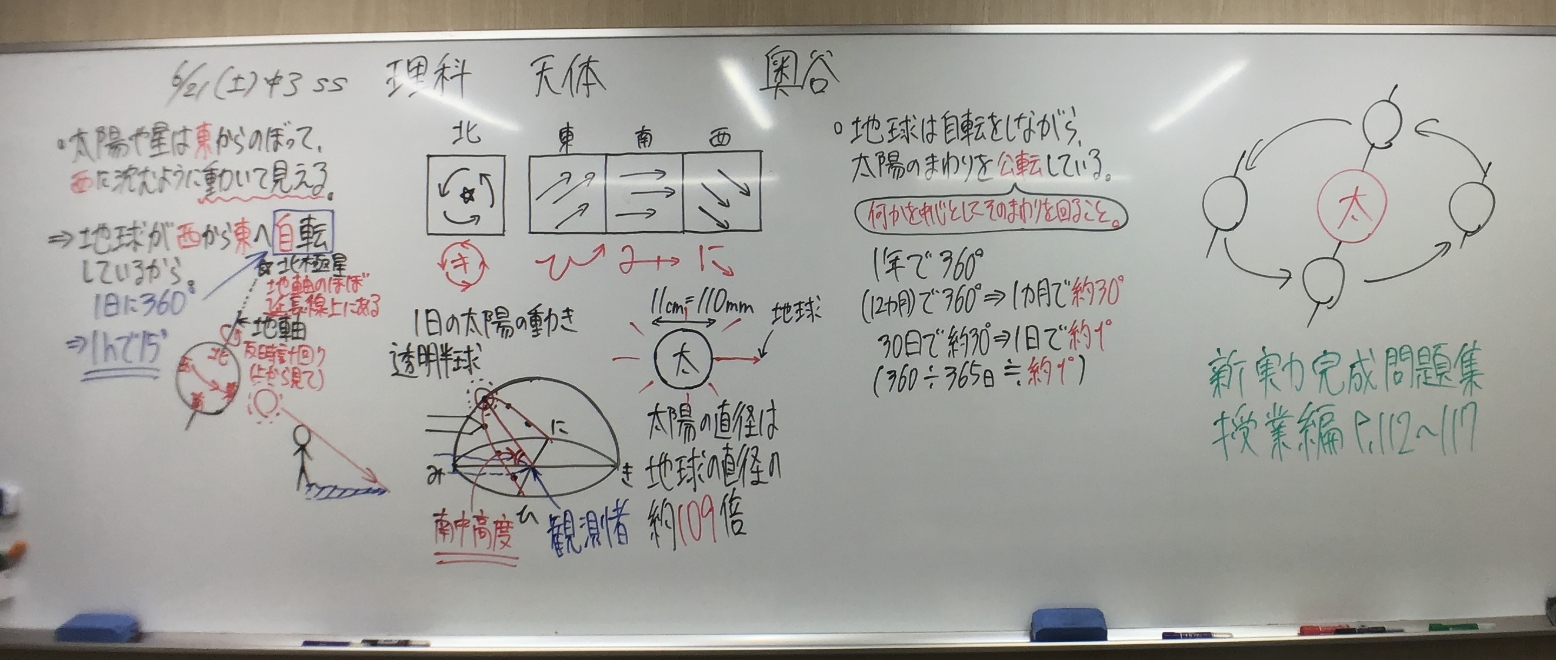 6/21(土)中3 SS 理科 天体 奥谷
。太陽や星は東からのぼって、
西に沈むように動いて見える。
⇒地球が西から東へ自転
しているから。
1日に360°
⇒1hで15°
北極星
地軸のほぼ
延長線上にある
地軸
反時計回り
(上から見て)
北
西
東
南
北
東 南 西
き
ひ み に
1日の太陽の動き
透明半球
に
み
き
ひ
南中高度
観測者
11cm=110mm
地球
太
太陽の直径は
地球の直径の
約109倍
。地球は自転をしながら、
太陽のまわりを公転している。
何かを中心としてそのまわりを回ること。
1年で360°
(12カ月)で360°⇒1カ月で約30°
30日で約30°⇒1日で約1°
(360÷365日≒約1°)
太
新実力完成問題集
授業編P.112~117